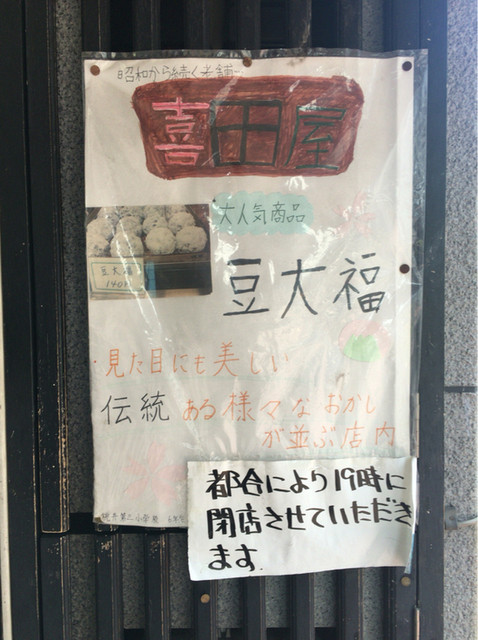 昭和から続く老舗…
喜田屋
大人気商品
豆大福
140円
豆大福
・見た目にも美しい
伝統ある様々なおかし
が並ぶ店内
都合により19時に
閉店させていただき
ます.